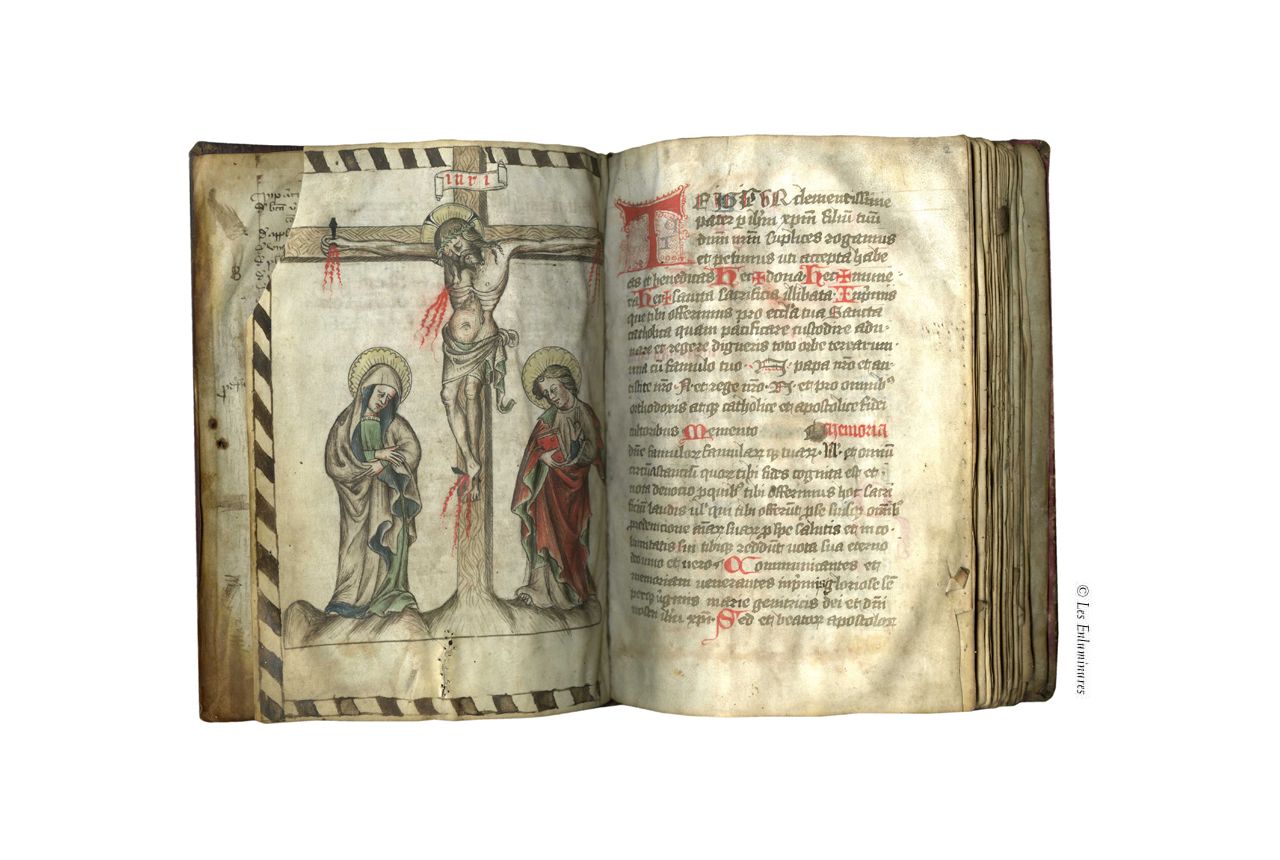 inri
TE IGITUR clementissime
pater p ihm xpm filiu tuu
dnm nrm Suplices rogamus
et petimus uti accepta habe
as et benedicas hec ✠ dona hec ✠ mune
ra hec ✠ sancta sacrificia illibata Inprimis
que tibi offerimus pro eccla tua Sancta
catholica quam pacificare custodire adu
nare et regere digneris toto orbe terrarum
una cu famulo tuo N papa nro et an
tistite nro N et rege nro N et pro omnib
orthodoxis atq catholice et apostolice fidei
cultoribus Memento Memoria
dne famulor famular q tuar N et omniu
circustanciu quor tibi fides cognita est et
nota devocio p quib tibi offerimus hoc sacri
ficiu laudis ul qui tibi offerut p se suisq omib
redempcione aiar suar p spe salutis et in co
lumitatis sui tibiq reddut uota sua eterno
deo uiuo et uero Communicantes et
memoriam uenerantes inpmis gloriose sep
perq ugnis marie genitricis dei et dni
nostri ihu xpi Sed et beator apostolor
© Les Enluminures